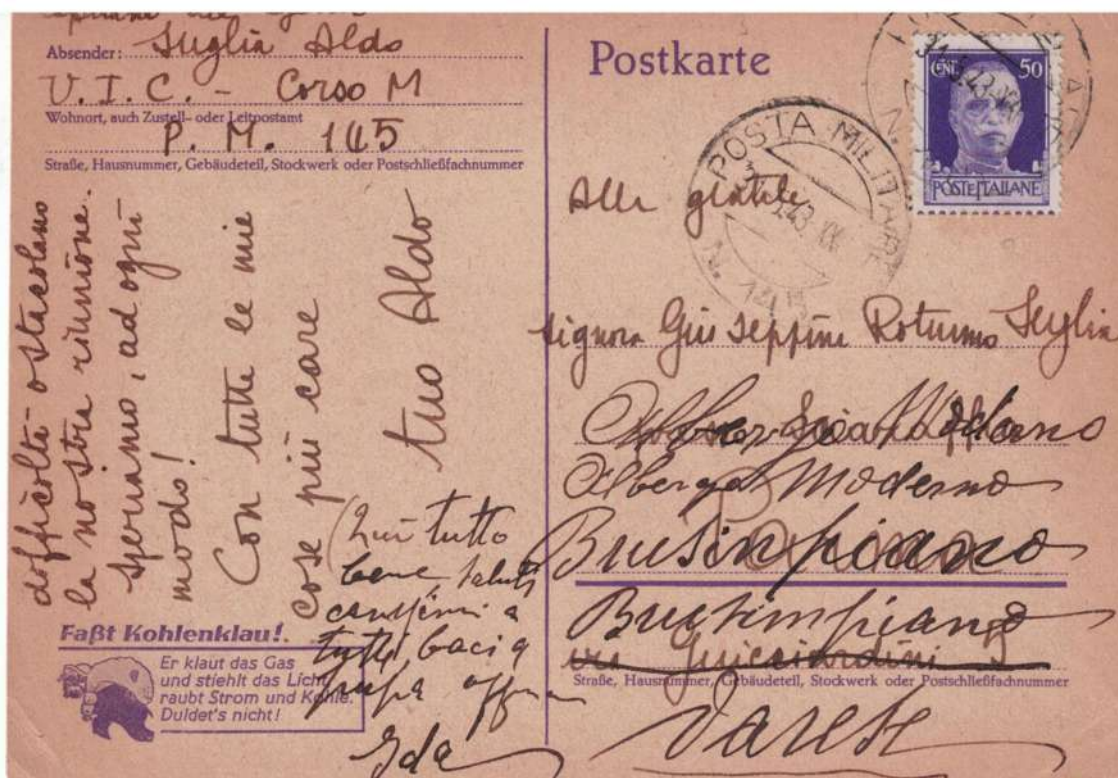 Absender: Suglia Aldo
V.I.C. - Corso M
Wohnort, auch Zustell- oder Leitpostamt
P. M. 145
Straße, Hausnummer, Gebäudeteil, Stockwerk oder Postschließfachnummer
difficoltà ostacolano
la nostra riunione.
Speriamo, ad ogni
modo!
Con tutte le mie
cose più care
tuo Aldo
(Qui tutto
bene, saluti
carissimi a
tutti, baci a
Ida
Faßt Kohlenklau!
Er klaut das Gas
und stiehlt das Licht,
raubt Strom und Kohle.
Duldet's nicht!
Postkarte
CENT 50
POSTE ITALIANE
POSTA MILITARE
43 XX
N.
Alla gentile
Signora Giuseppina Suglia
Albergo Moderno
Brusinpiano
Brusimpiano
via Guicciardini 5
Straße, Hausnummer, Gebäudeteil, Stockwerk oder Postschließfachnummer
Varese